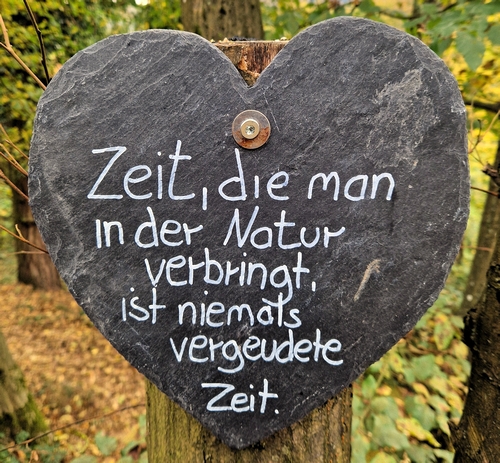 Zeit, die man
in der Natur
verbringt,
ist niemals
vergeudete
Zeit.